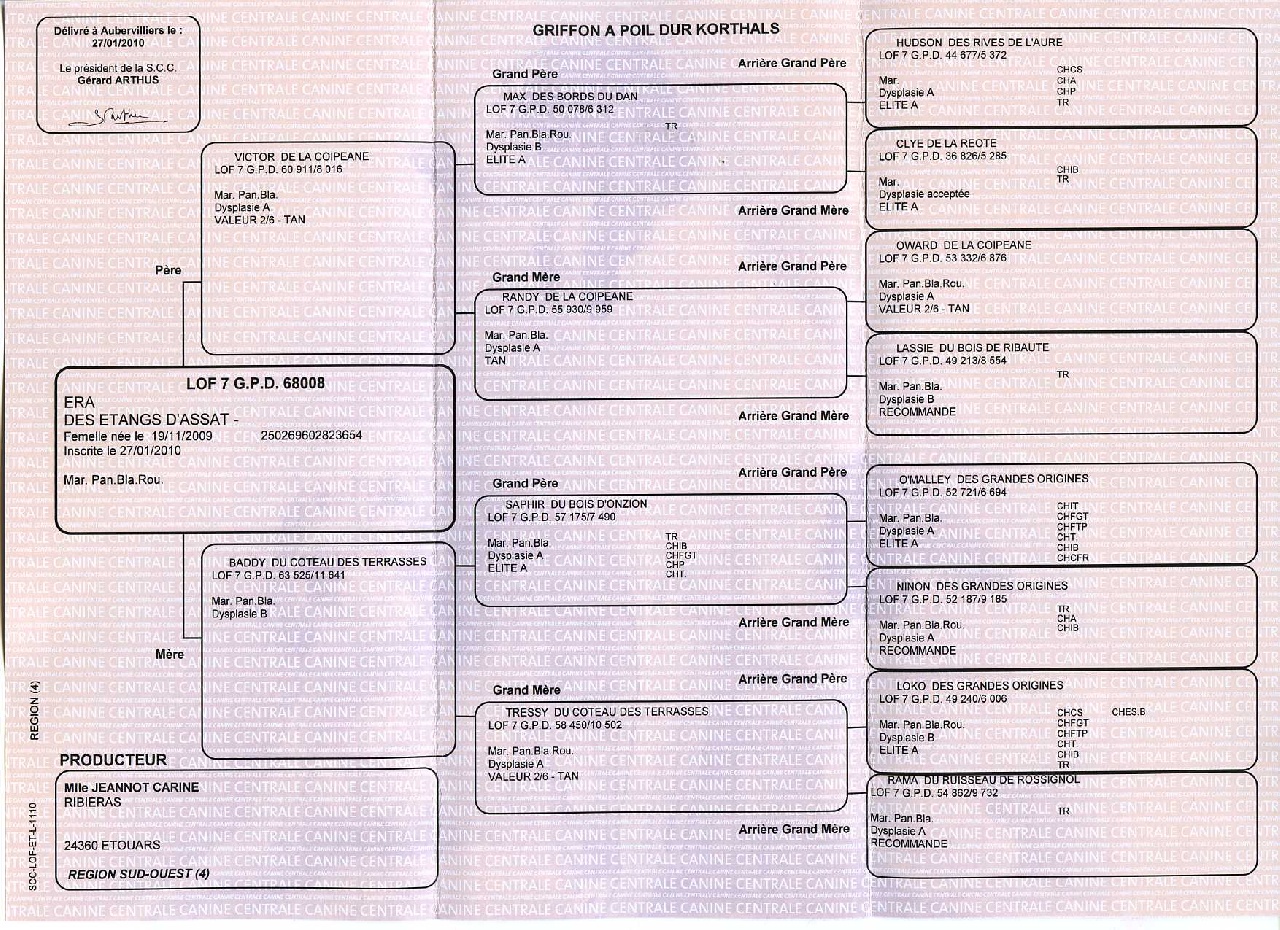 Délivré à Aubervilliers le :
27/01/2010
Le président de la S.C.C.
Gérard ARTHUS
GRIFFON A POIL DUR KORTHALS
Père
VICTOR DE LA COIPEANE
LOF 7 G.P.D. 60 911/8 016
Mar. Pan.Bla.
Dysplasie A
VALEUR 2/6 - TAN
LOF 7 G.P.D. 68008
ERA
DES ETANGS D'ASSAT -
Femelle née le 19/11/2009 250269602823654
Inscrite le 27/01/2010
Mar. Pan.Bla.Rou.
BADDY DU COTEAU DES TERRASSES
LOF 7 G.P.D. 63 525/11 841
Mar. Pan.Bla.
Dysplasie B
Mère
Grand Père
MAX DES BORDS DU DAN
LOF 7 G.P.D. 50 078/6 312
TR
Mar. Pan.Bla.Rou.
Dysplasie B
ELITE A
Grand Mère
RANDY DE LA COIPEANE
LOF 7 G.P.D. 55 930/9 959
Mar. Pan.Bla.
Dysplasie A
TAN
Grand Père
SAPHIR DU BOIS D'ONZION
LOF 7 G.P.D. 57 175/7 490
Mar. Pan.Bla.
Dysplasie A
ELITE A
TR
CHIB
CHFGT
CHP
CHT.
Grand Mère
TRESSY DU COTEAU DES TERRASSES
LOF 7 G.P.D. 58 450/10 502
Mar. Pan.Bla.Rou.
Dysplasie A
VALEUR 2/6 - TAN
Arrière Grand Père
HUDSON DES RIVES DE L'AURE
LOF 7 G.P.D. 44 677/5 372
Mar.
Dysplasie A
ELITE A
CHCS
CHA
CHP
TR
CLYE DE LA REOTE
LOF 7 G.P.D. 36 826/5 285
Mar.
Dysplasie acceptée
ELITE A
CHIB
TR
Arrière Grand Mère
Arrière Grand Père
OWARD DE LA COIPEANE
LOF 7 G.P.D. 53 332/6 876
Mar. Pan.Bla.Rou.
Dysplasie A
VALEUR 2/6 - TAN
LASSIE DU BOIS DE RIBAUTE
LOF 7 G.P.D. 49 213/8 554
TR
Mar. Pan.Bla.
Dysplasie B
RECOMMANDE
Arrière Grand Mère
Arrière Grand Père
O'MALLEY DES GRANDES ORIGINES
LOF 7 G.P.D. 52 721/6 694
Mar. Pan.Bla.
Dysplasie A
ELITE A
CHIT
CHFGT
CHFTP
CHT.
CHIB
CHCFR
NINON DES GRANDES ORIGINES
LOF 7 G.P.D. 52 187/9 185
Mar. Pan.Bla.Rou.
Dysplasie A
RECOMMANDE
TR
CHA
CHIB
Arrière Grand Mère
Arrière Grand Père
LOKO DES GRANDES ORIGINES
LOF 7 G.P.D. 49 240/6 006
Mar. Pan.Bla.Rou.
Dysplasie B
ELITE A
CHCS CHES.B
CHFGT
CHFTP
CHT.
CHIB
TR
RAMA DU RUISSEAU DE ROSSIGNOL
LOF 7 G.P.D. 54 862/9 732
TR
Mar. Pan.Bla.
Dysplasie A
RECOMMANDE
Arrière Grand Mère
PRODUCTEUR
Mlle JEANNOT CARINE
RIBIERAS
24360 ETOUARS
REGION SUD-OUEST (4)
REGION (4)
SCC-LOF-ET-L-1110